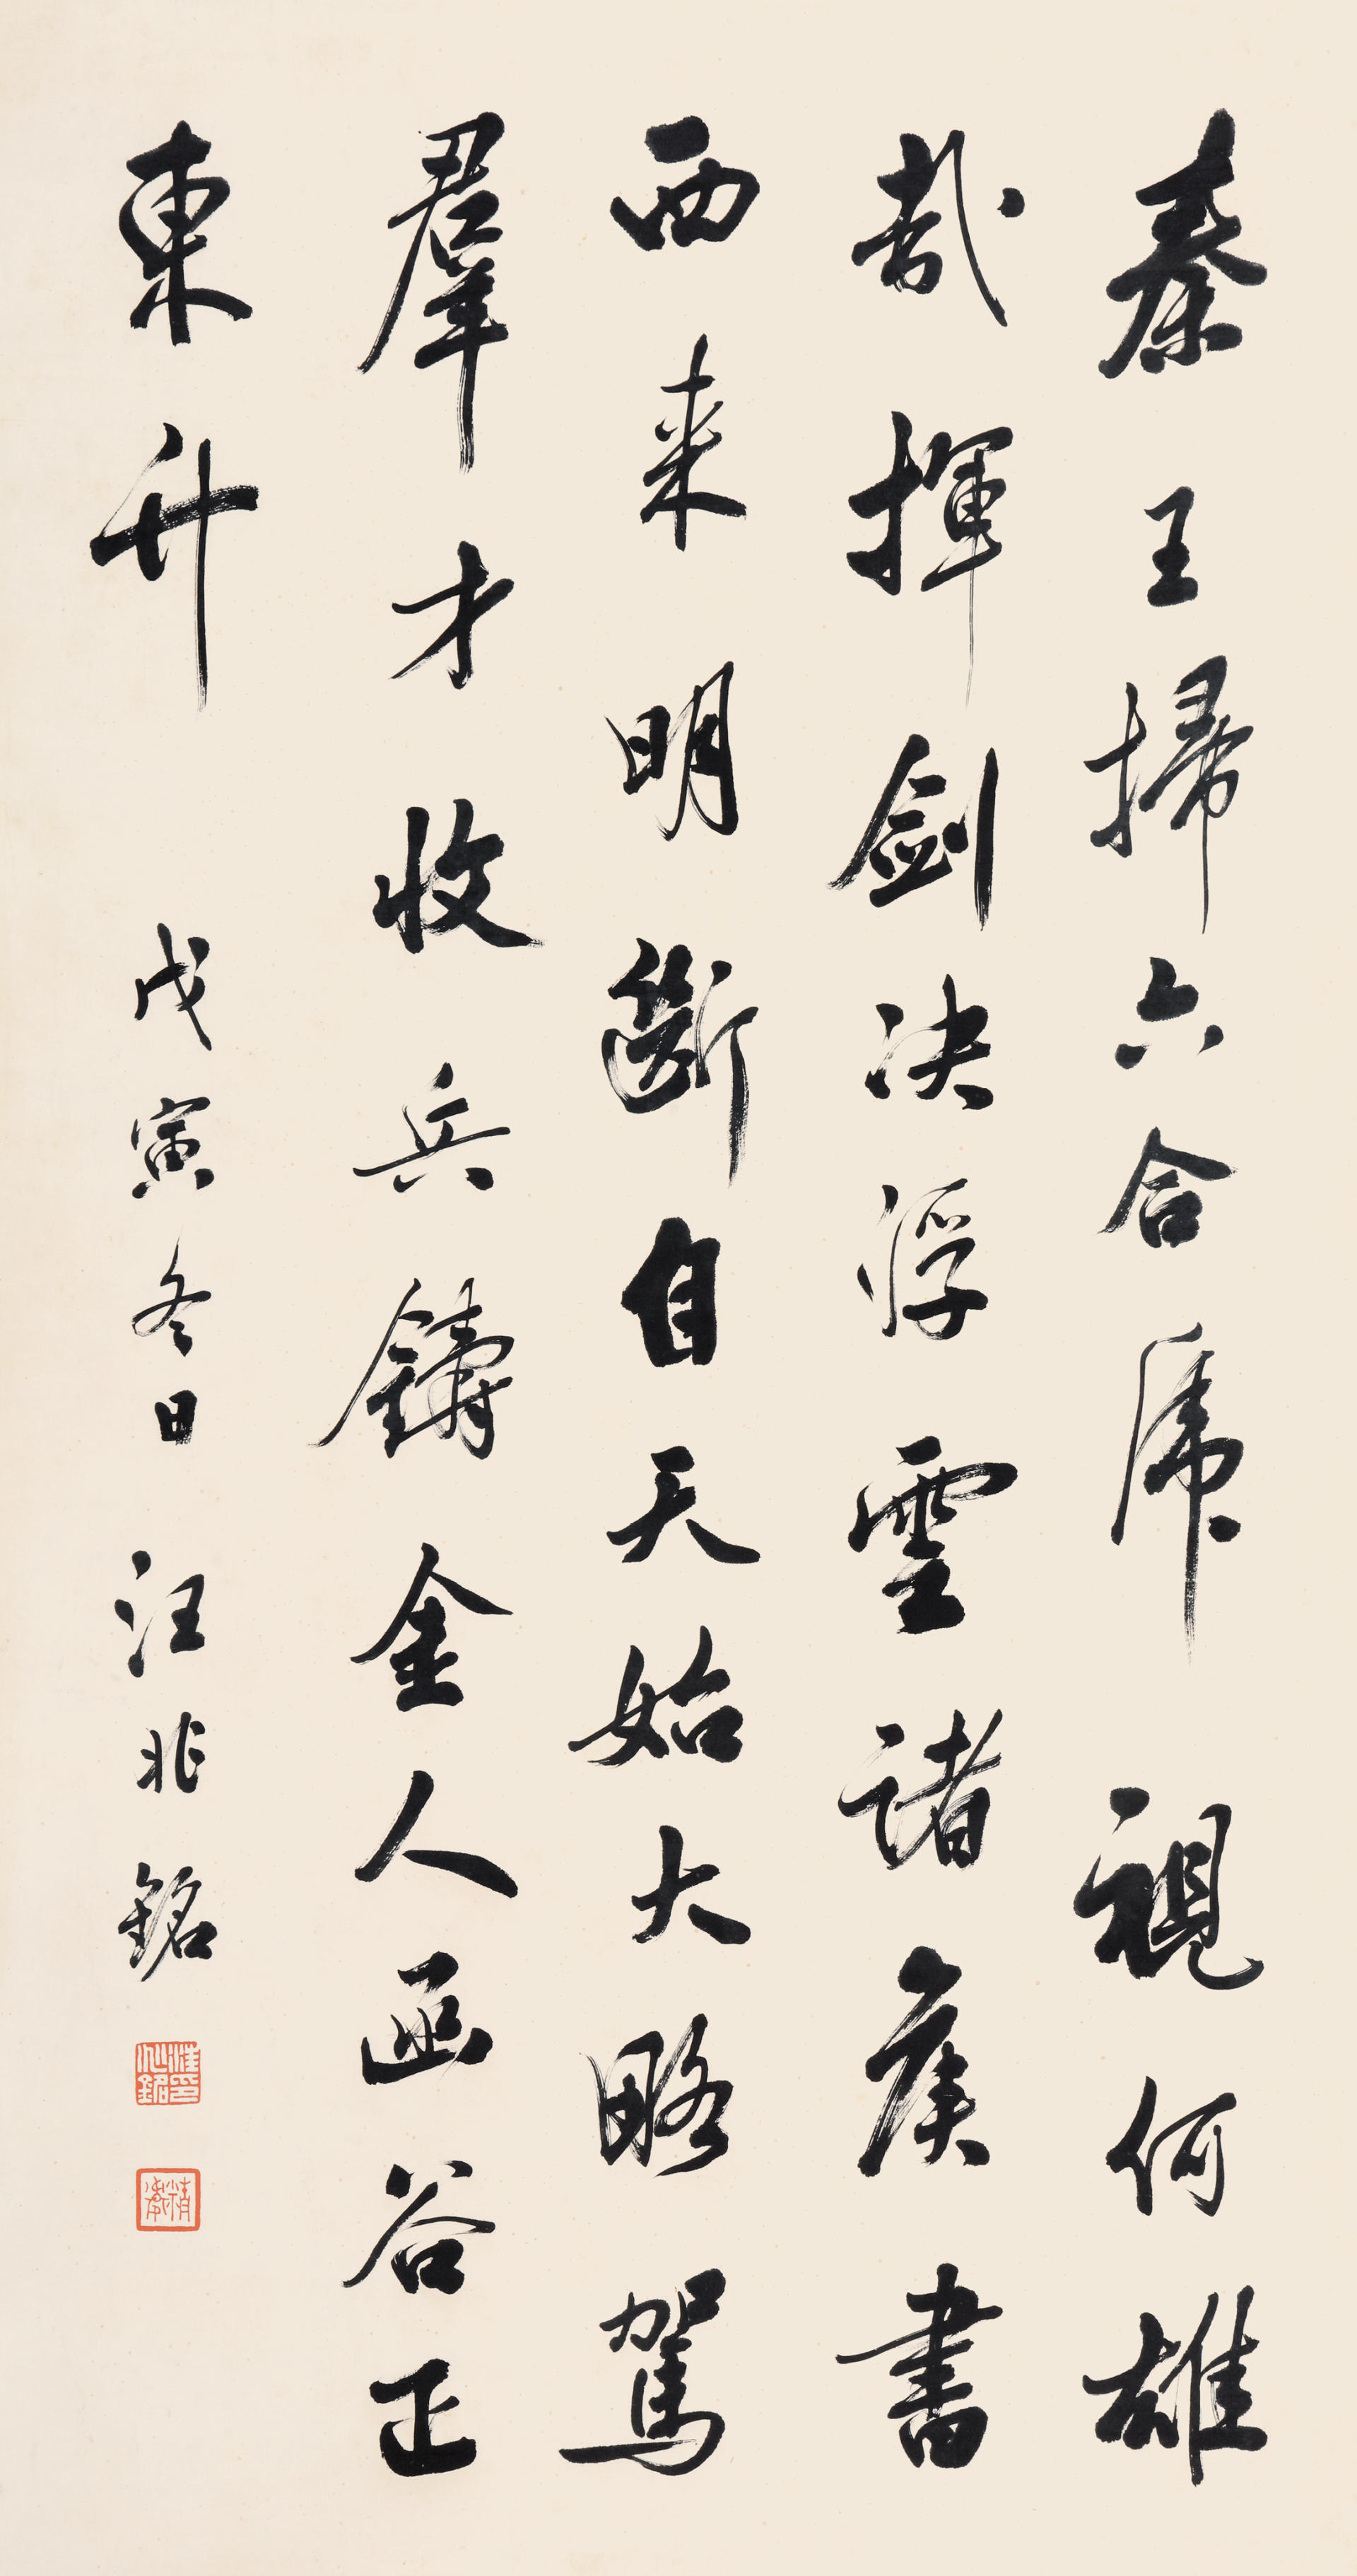 秦王掃六合虎視何雄
哉揮劍決浮雲諸侯書
西来明斷自天始大略駕
羣才收兵鑄金人函谷正
東升
戊寅冬日
汪兆銘